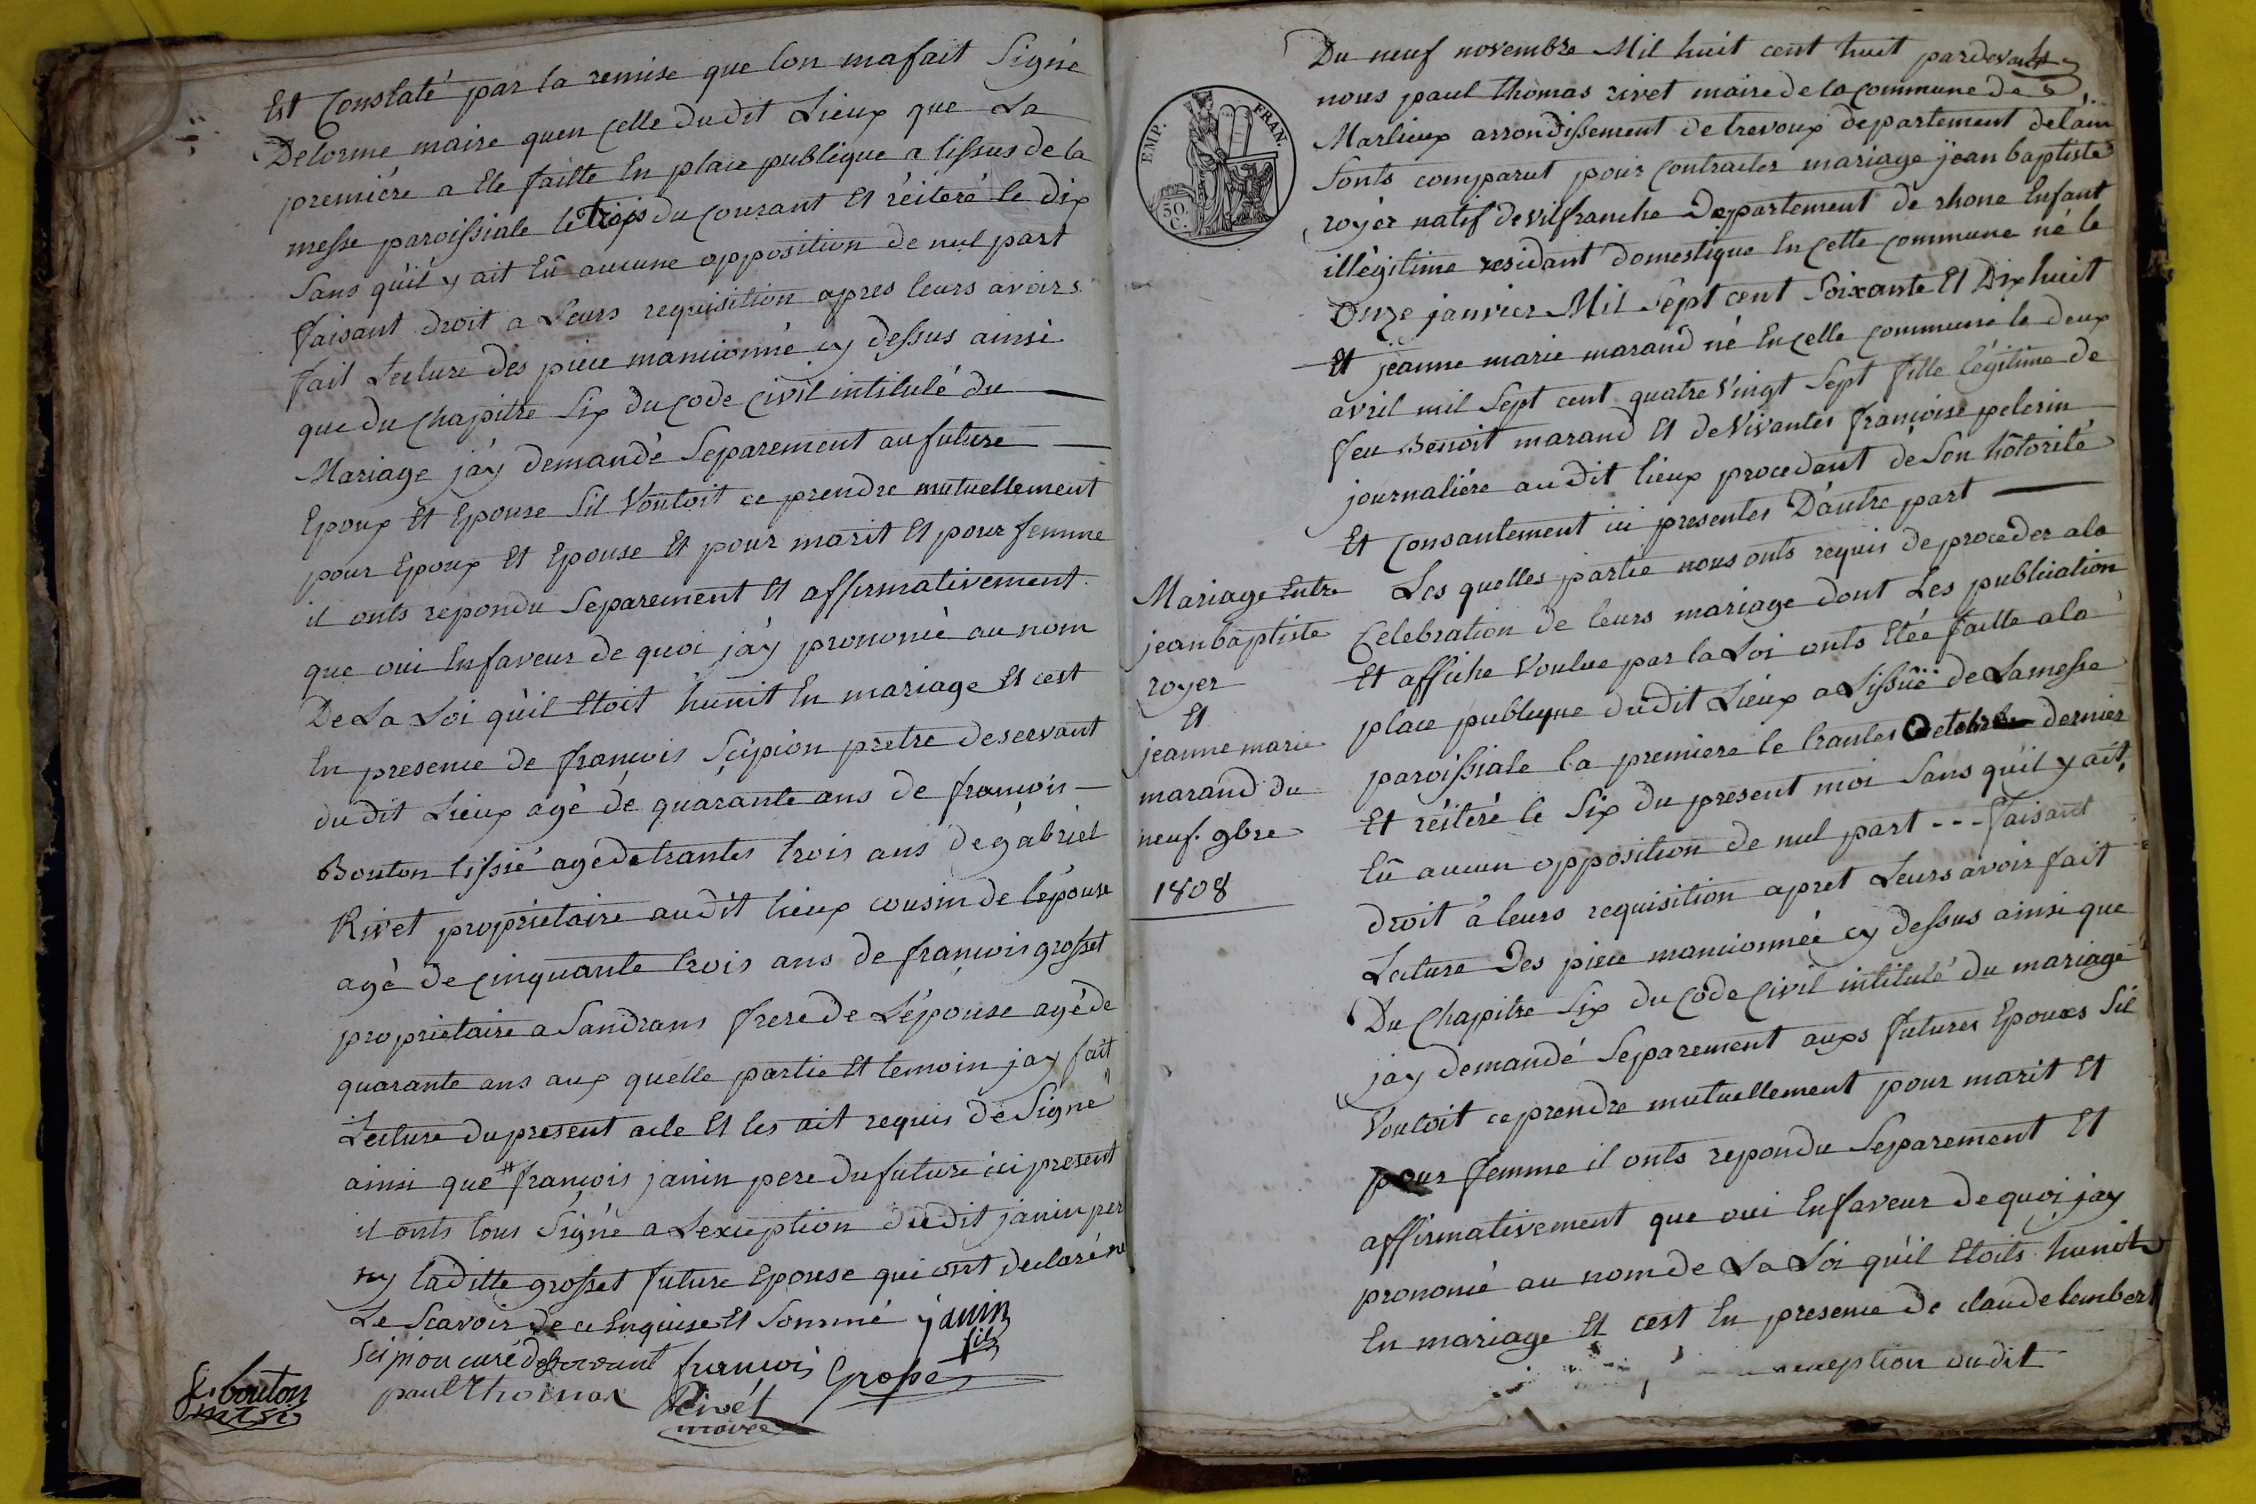 Est Constaté par la remise que lon mafait Signé
Delorme maire quen celle dudit Lieux que La
premiére a Ete faitte En place publique a lissus de la
messe paroissiale le trois du courant Et réiteré le dix
Sans qúil y ait Eû aucune opposition de nul part
faisant droit a Leurs requisition apres leurs avoirs
fait Lecture des piece mancionné cy dessus ainsi
que du Chapitre Six du code Civil intitulé du
Mariage jáy demandé Separement au future
Epoux Et Epouse Sil Vouloit ce prendre mutuellement
pour Epoux Et Epouse Et pour marit Et pour femme
il onts repondu Separement Et affirmativement
que oui Enfaveur de quoi jáy prononcé au nom
De La Loi qúil Etoit hunit En mariage Et cest
En presence de francois Scipion pretre deservant
dudit Lieux agé de quarante ans de francois
Bouton tissié agé de trantes trois ans de gabriel
Rivet proprietaire audit lieux cousin de lépouse
agé de cinquante trois ans de francois grosset
proprietaire a Sandrans frere de Lépouse agé de
quarante ans aux quelle partie Et temoin jay fait
Lecture du present acte Et les ait requis de Signé
ainsi que # francois janin pere du future ici present
il onts tous Signé a Lexception dudit janin per
ny laditte grosset future Epouse qui ont declaré ne
Le Scavoir de ce Enquise Et Sommé janin
fils
Scipion curé deservant francois Grosset
fr. bouton
paul Thomas Rivét
maire
EMP. FRAN.
50.
C.
Du neuf novembre Mil huit cent huit pardevants
nous paul thomas rivet maire de la commune de
Marlieux arrondissement de trevoux departement de láin
Sonts comparut pour contracter mariage jean baptiste
royér natif de vilfranche Departement de rhone Enfant
illégitime residant domestique En cette commune né le
Onze janvier Mil Sept cent Soixante Et Dix huit
Et jeanne marie marand né En celle commune le deux
avril mil Sept cent quatre Vingt Sept fille légitime de
feu Benoit marand Et de Vivantes francoise pelerin
journaliére audit lieux procedant de Son hôtorité
Et Consantement ici presentes Dáutre part
Mariage Entre
jean baptiste
royer
Et
jeanne marie
marand du
neuf. 9bre
1808
Les quelles partie nous onts requis de proceder ala
Celebration de leurs mariage dont Les publication
Et affiche Voulue par la Loi onts Etée faitte ala
place publique dudit Lieux a Lissüe de Lamesse
paroissiale la premiere le trantes Octobre dernier
Et réitéré le Six du present moi Sans qúil y ait
Eû aucun opposition de nul part --- faisant
droit á leurs requisition apret Leurs avoir fait
Lecture Des piece mancionnée cy dessus ainsi que
Du Chapitre Six du code Civil intitulé du mariage
jay demandé Separement auxs futures Epouxs Sil
Vouloit ce prendre mutuellement pour marit Et
pour femme il onts repondu Separement Et
affirmativement que oui Enfaveur de quoi jay
prononcé au nom de La Loi qúil Etoits hunit
En mariage Et cest En presence de claude lambert
exception dudit